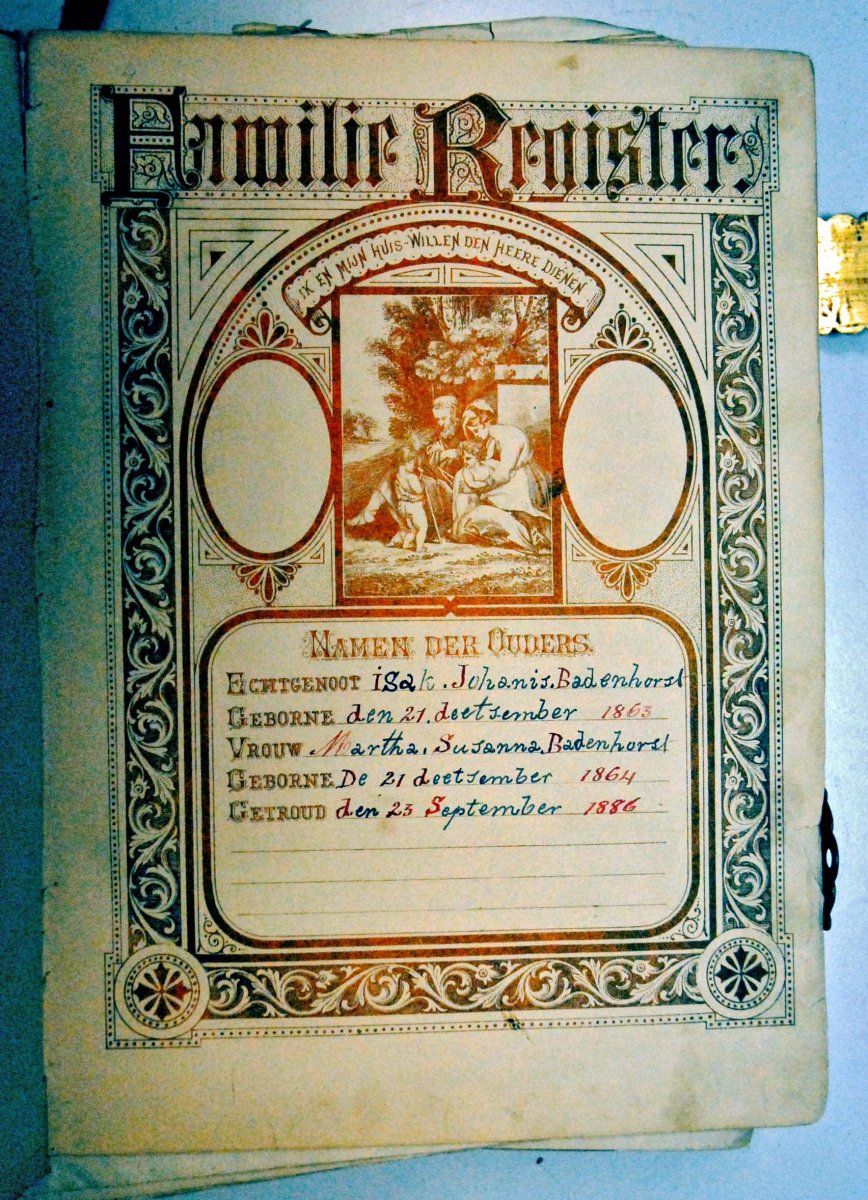 Familie Register.
IK EN MIJN HUIS WILLEN DEN HEERE DIENEN
NAMEN DER OUDERS.
ECHTGENOOT isak. Johanis. Badenhorst
GEBORNE den 21. deetsember 1863
VROUW Martha. Susanna. Badenhorst
GEBORNE De 21 deetsember 1864
GETROUD den 23 September 1886